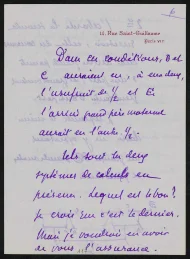 6
15, Rue Saint-Guillaume
Paris VIIe
Dans ces conditions, B et
C auraient eu, à eux deux,
l'usufruit de 1/2 et E.
l'arrière grand père maternel
aurait eu l'autre 1/2.
Tels sont les deux
systèmes de calculs en
présence. Lequel est le bon?
Je crois que c'est le dernier.
Mais je voudrais en avoir
de vous l'assurance.